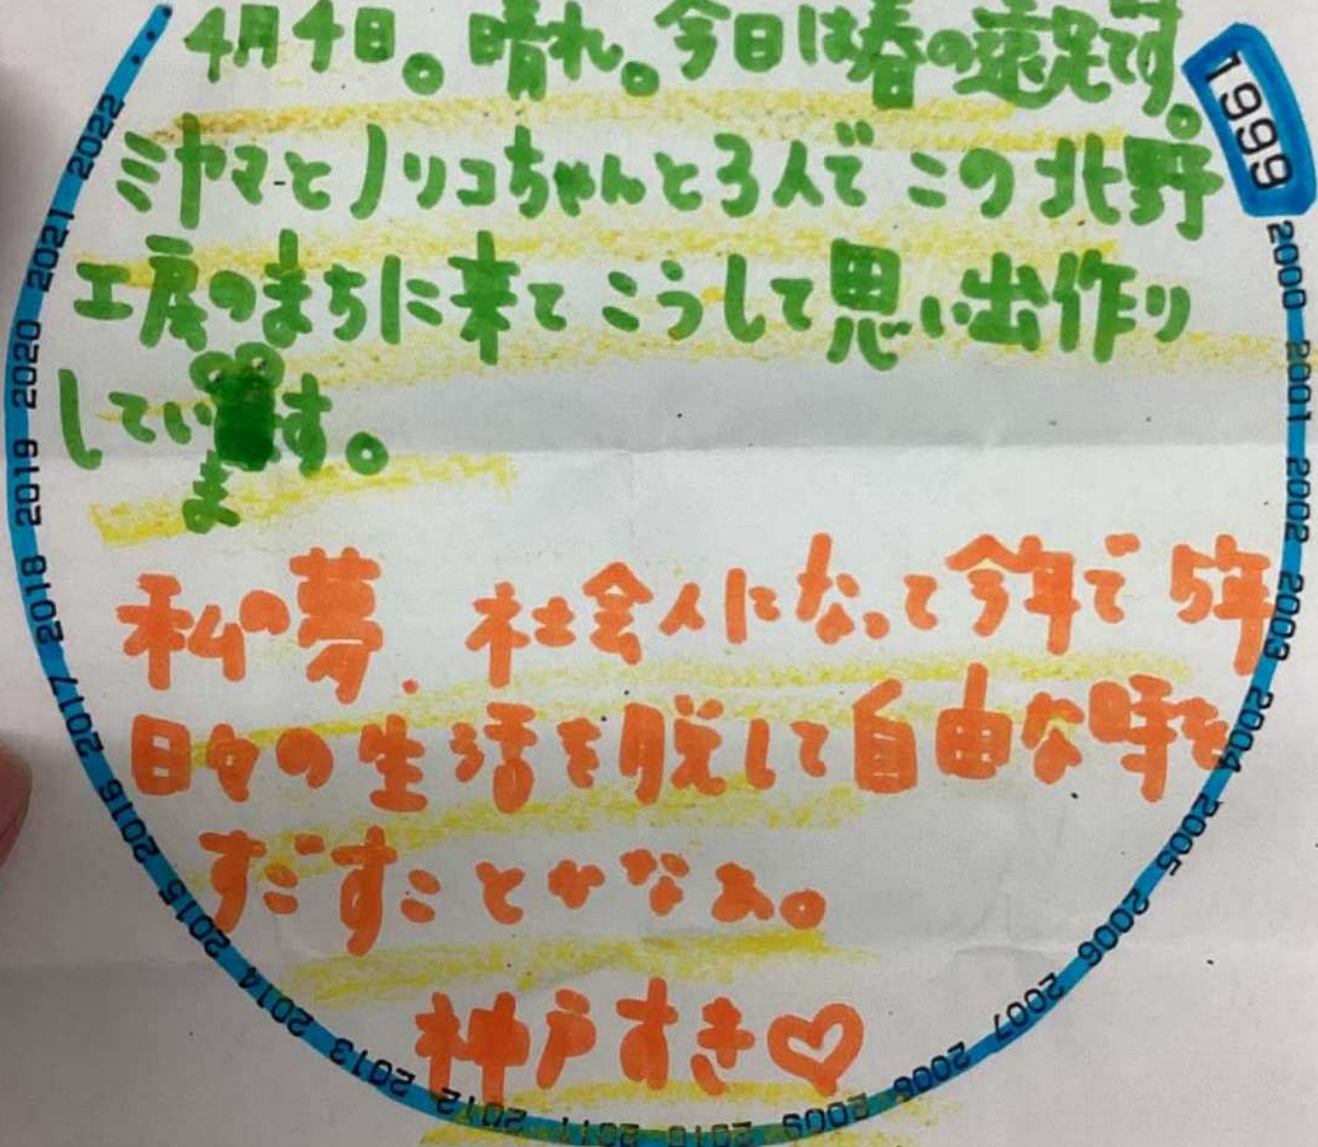 4月4日。晴れ。今日は春の遠足です。
ミヤマとノリコちゃんと3人でこの北野
工房のまちに来てこうして思い出作り
しています。
私の夢.社会人になって今年で5年
日々の生活を脱して自由な時を
すごすことかなぁ。
神戸すき♡
1999
2000
2001
2002
2003
2004
2005
2006
2007
2008
2009
2010
2011
2012
2013
2014
2015
2016
2017
2018
2019
2020
2021
2022